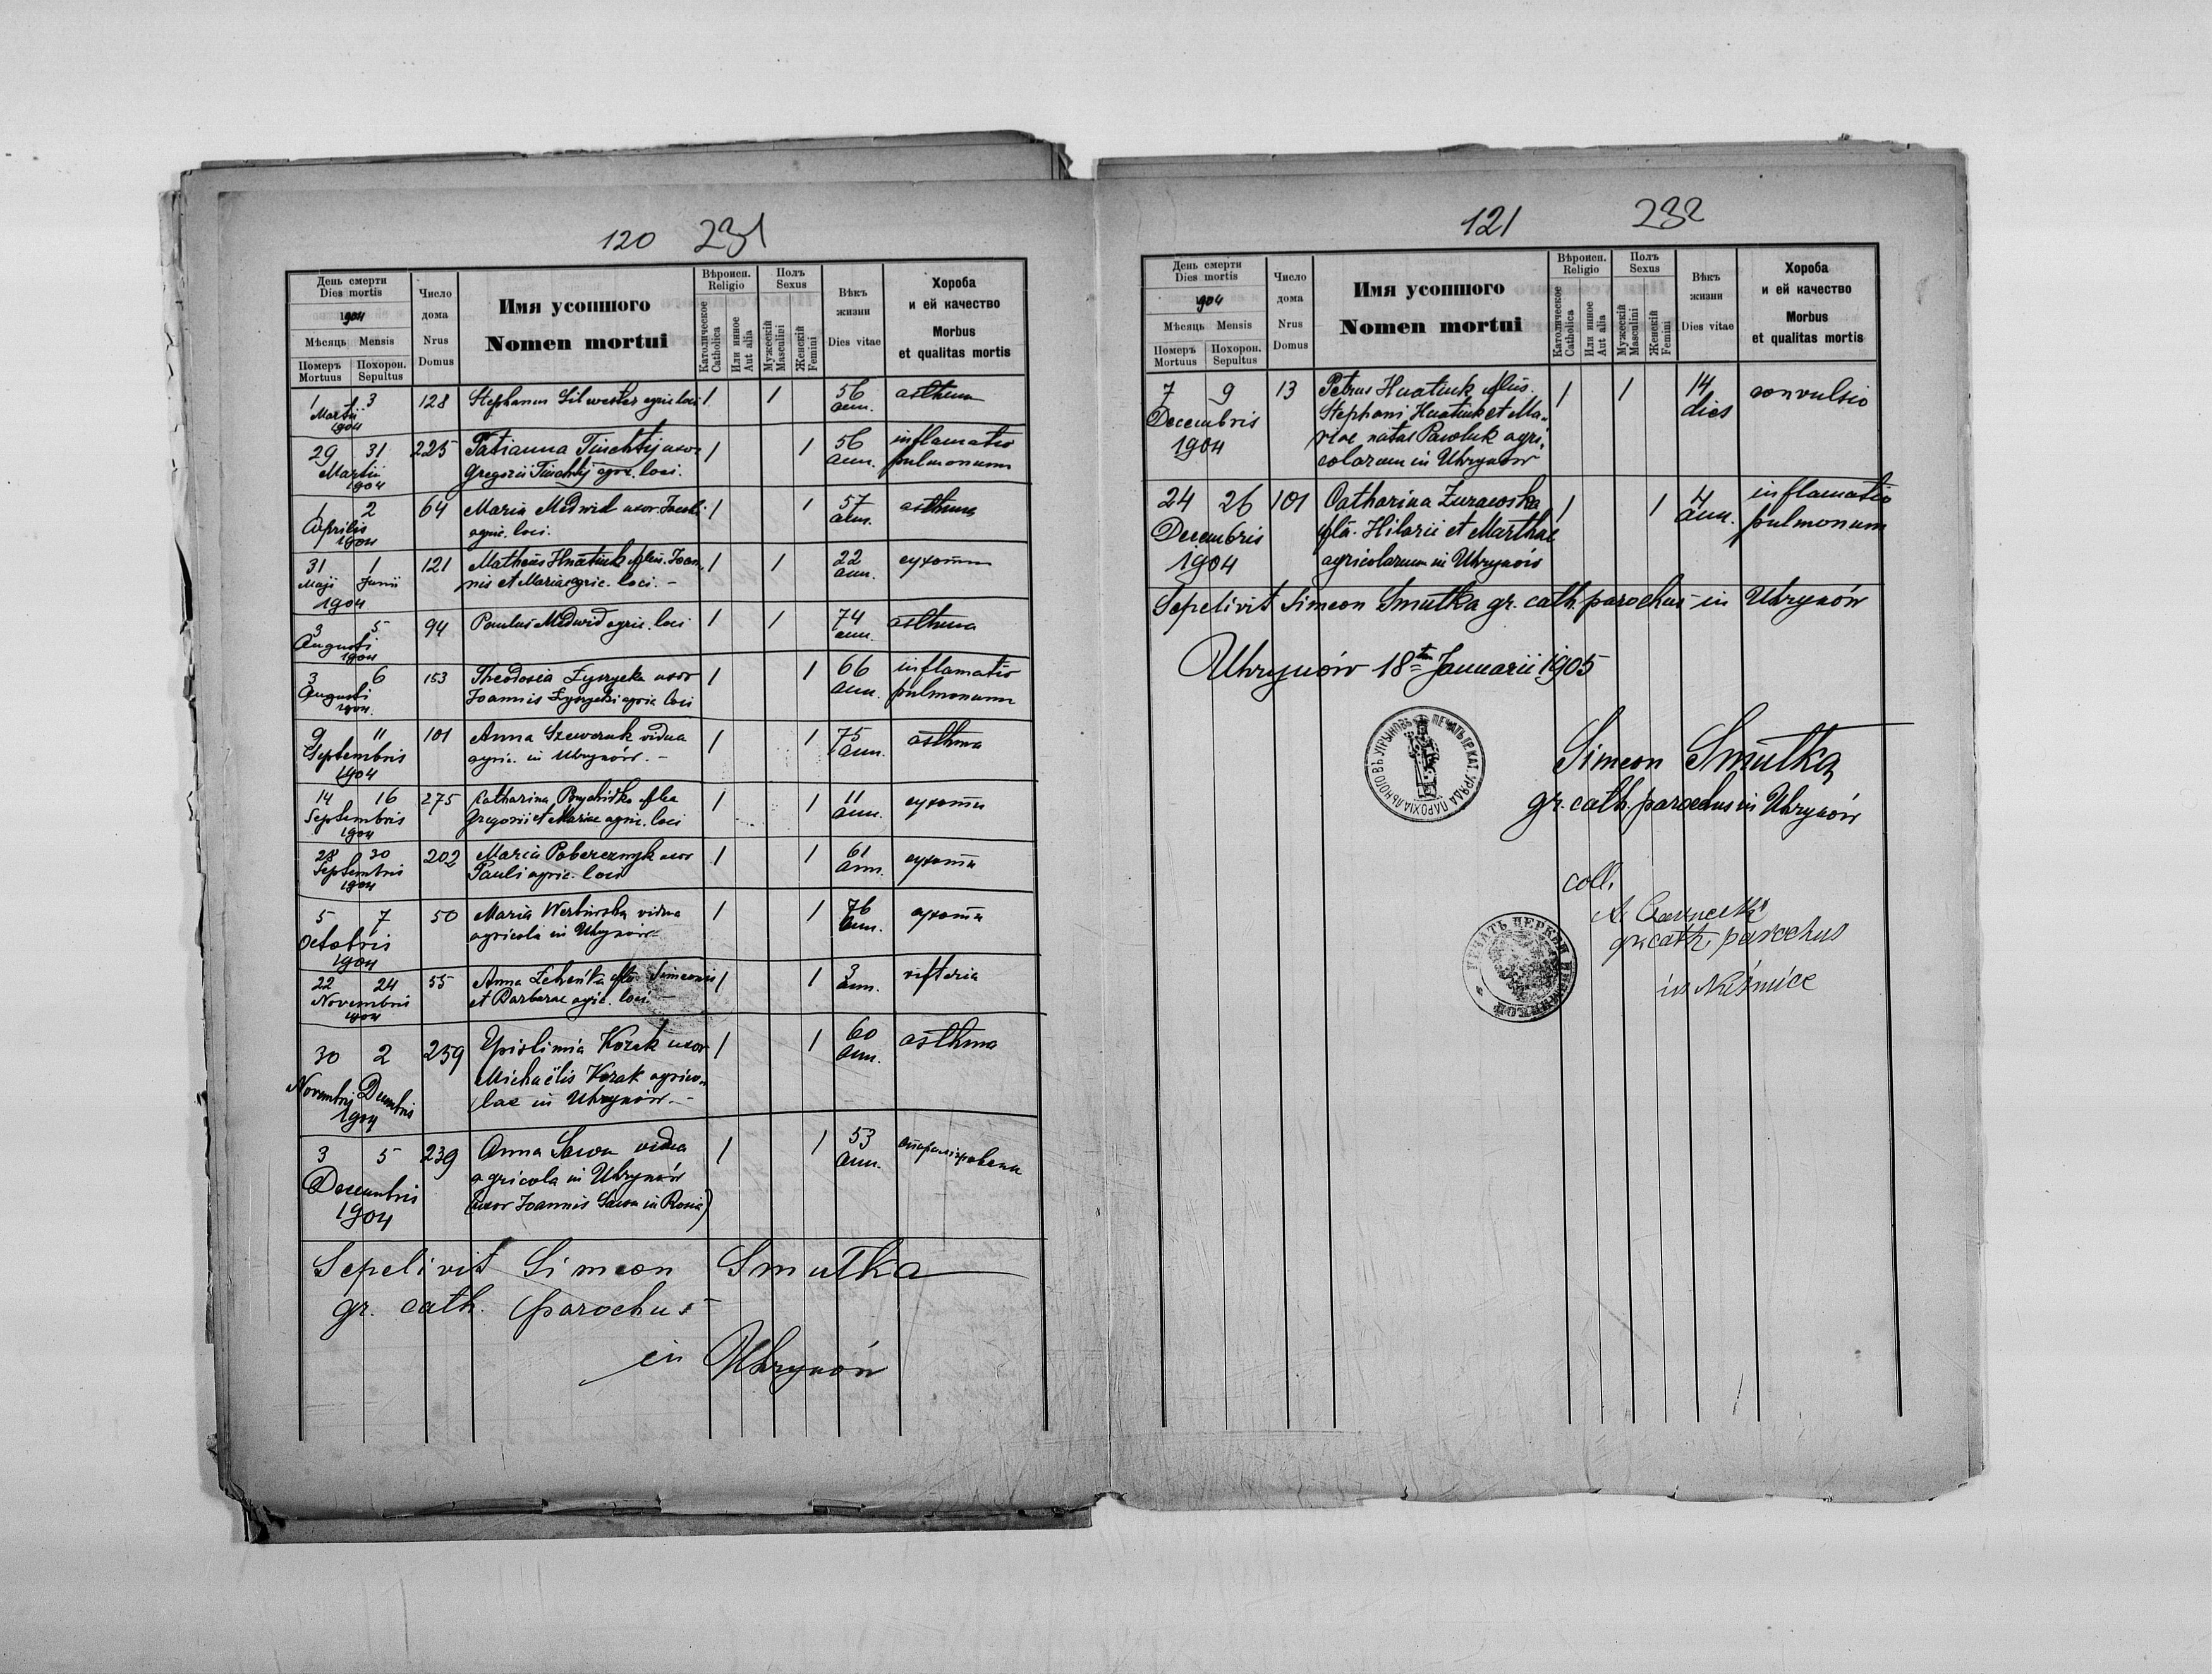 120 231
День смерти
Dies mortis
1904
Мѣсяць Mensis
Померъ Mortuus
Похорон. Sepultus
Число дома
Nrus Domus
Имя усопшого
Nomen mortui
Вѣроисп.
Religio
Католическое Catholica
Или инное Aut alia
Полъ
Sexus
Мужескій Masculini
Женскій Femini
Вѣкъ жизни
Dies vitae
Хороба
и ей качество
Morbus
et qualitas mortis
1 3 128 Stephanus Silwester agric. loci 1 1 56 asthma
Martii ann.
1904
29 31 225 Tatianna uxor 1 1 56 inflamatio
Martii Gregorii agric. loci. ann. pulmonum
1904
1 2 64 Maria Medwid uxor 1 1 57 asthma
Aprilis agric. loci. ann.
1904
31 1 121 Matheus Hnatiuk filius Joan- 1 1 22 сухоты
Maji Junii nis et Mariae agric. loci. – ann.
1904
3 5 94 Paulus Medwid agric. loci 1 1 74 asthma
Augusti ann.
1904
3 6 153 Theodosia uxor 1 1 66 inflamatio
Augusti Joannis agric. loci ann. pulmonum
1904.
9 11 101 Anna Szewczuk vidua 1 1 75 asthma
Septembris agric. in Uhrynów. – ann.
1904
14 16 275 Catharina filia 1 1 11 сухоты
Septembris Gregorii et Mariae agric. loci ann.
1904
28 30 202 Maria Pobereznyk uxor 1 1 61 сухоты
Septembris Pauli agric. loci ann.
1904
5 7 50 Maria Werbiwska vidua 1 1 76 сухоты
Octobris agricola in Uhrynów – ann.
1904
22 24 55 Anna filia Simeonis 1 1 3 difteria
Novembris et Barbarae agric. loci. – ann.
1904
30 2 259 Kozak uxor 1 1 60 asthma
Novembris Decembris Michaëlis Kozak agrico- ann.
1904 lae in Uhrynów. –
3 5 239 Anna Sawa vidua 1 1 53
Decembris agricola in Uhrynów ann.
1904 (uxor Joannis Sawa in)
Sepelivit Simeon Smutka
gr. cath. parochus
in Uhrynów
121 232
День смерти
Dies mortis
1904
Мѣсяць Mensis
Померъ Mortuus
Похорон. Sepultus
Число дома
Nrus Domus
Имя усопшого
Nomen mortui
Вѣроисп.
Religio
Католическое Catholica
Или инное Aut alia
Полъ
Sexus
Мужескій Masculini
Женскій Femini
Вѣкъ жизни
Dies vitae
Хороба
и ей качество
Morbus
et qualitas mortis
7 9 13 Petrus Hnatiuk filius 1 1 14 convulsio
Decembris Stephani Hnatiuk et Ma- dies
1904 riae natae Pawluk agri-
colarum in Uhrynów
24 26 101 Catharina Zurawska 1 1 4 inflamatio
Decembris filia Hilarii et Marthae ann. pulmonum
1904 agricolarum in Uhrynów
Sepelivit Simeon Smutka gr. cath. parochus in Uhrynów
Uhrynów 18 Januarii 1905
ПЕЧАТЬ ГР. КАТ. УРЯДА ПАРОХІАЛЬНОГО ВЪ УГРЫНОВѢ
Simeon Smutka
gr. cath. parochus in Uhrynów
coll.
gr. cath. parochus
in
ПЕЧАТЬ ЦЕРКВИ